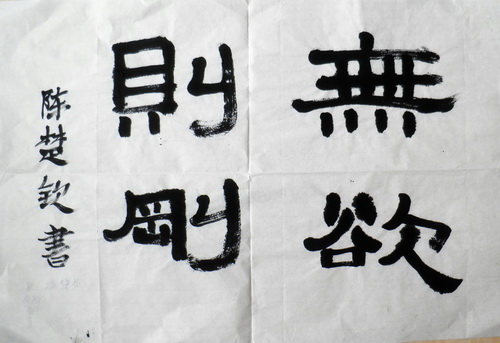 無欲
則剛
陈楚钦書